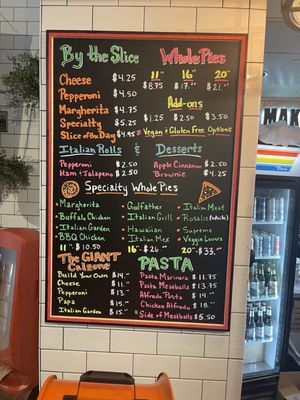 By the Slice Whole Pies
Cheese $4.25 11" 16" 20"
Pepperoni $4.50 $8.75 $17.⁰⁰ $21.⁰⁰
Margherita $4.75 Add-ons
Specialty $5.25 $1.25 $2.50 $3.50
Slice of the Day $4.95 Vegan & Gluten Free Options
Italian Rolls & Desserts
Pepperoni $2.50 Apple Cinnamon $2.50
Ham & Jalapeno $2.50 Brownie $4.25
Specialty Whole Pies
• Margherita • Godfather • Italian Meat
• Buffalo Chicken • Italian Grill • Rosalie (White)
• Italian Garden • Hawaiian • Supreme
• BBQ Chicken • Italian Mex • Veggie Lovers
11" - $10.50 16" - $26 20" - $33
The GIANT Calzone PASTA
Build Your Own $14.
Cheese $11.
Pepperoni $13.
Papa $15.
Italian Garden $15.
Pasta Marinara $11.75
Pasta Meatballs $13.75
Alfredo Pasta $14.
Chicken Alfredo $18.
* Side of Meatballs $5.50
MAK